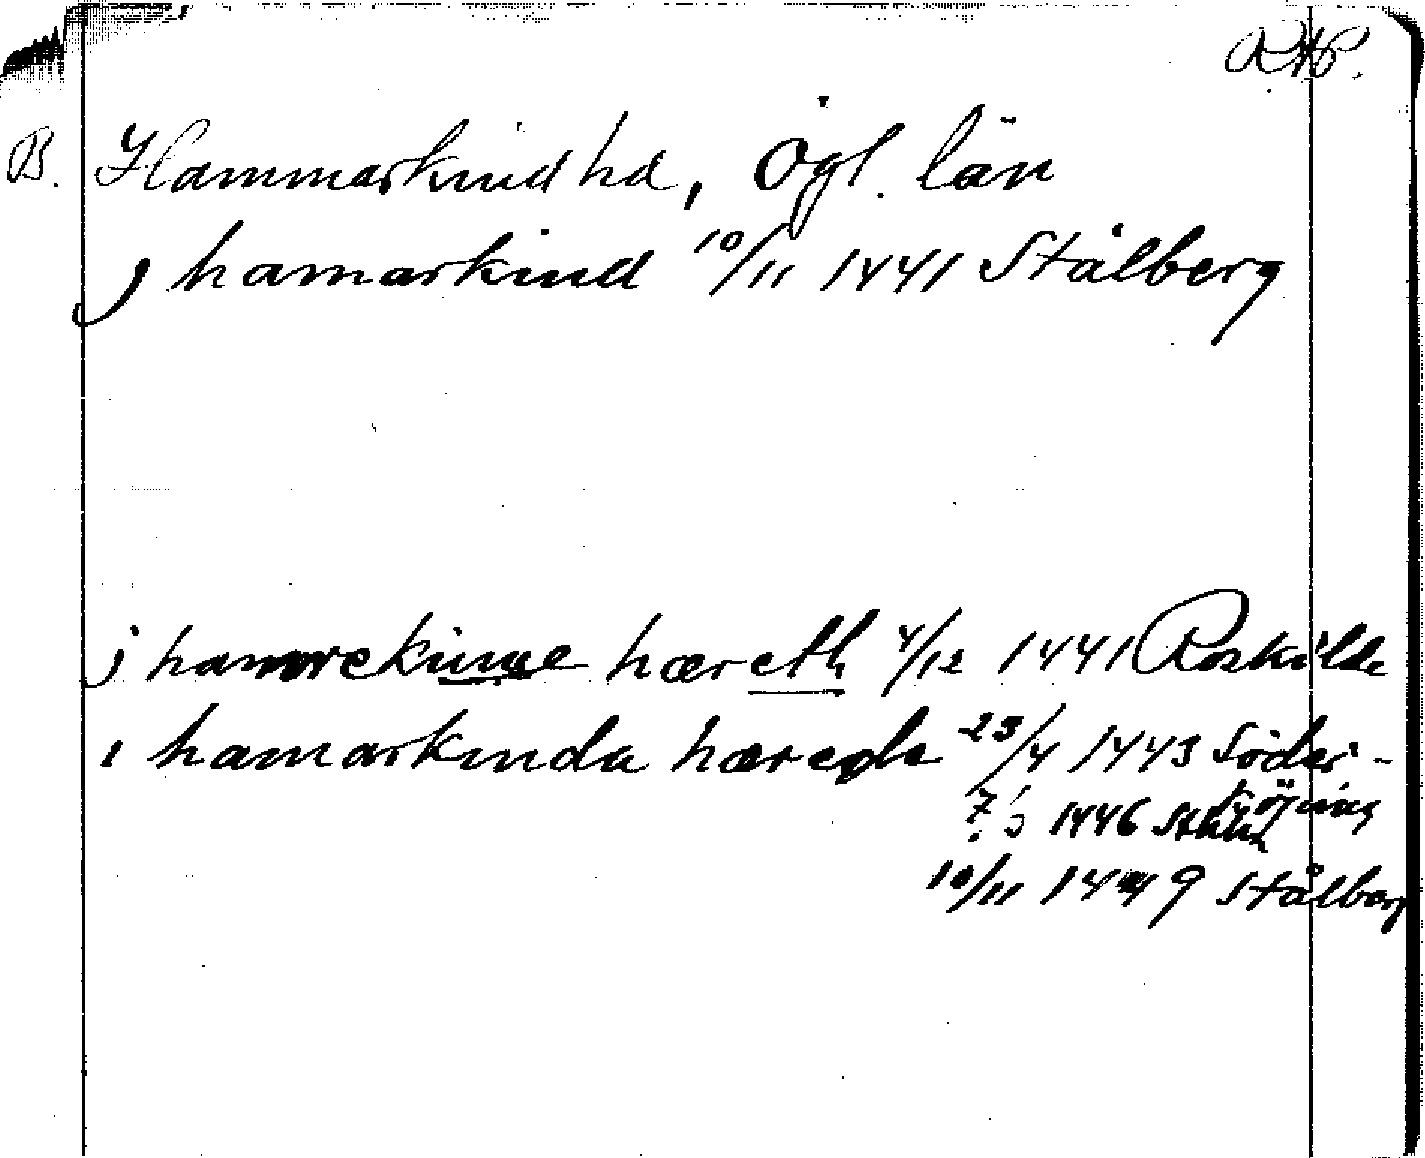 RAP.
B. Hammarkind hd, Ögl. län
j hamarkind 10/11 1441 Stålberg
j hamrekinne hæreth 4/12 1441 Roskilde
i hamarkinda hærade 23/4 1443 Söder-
köping
1446
10/11 1449 Stålberg